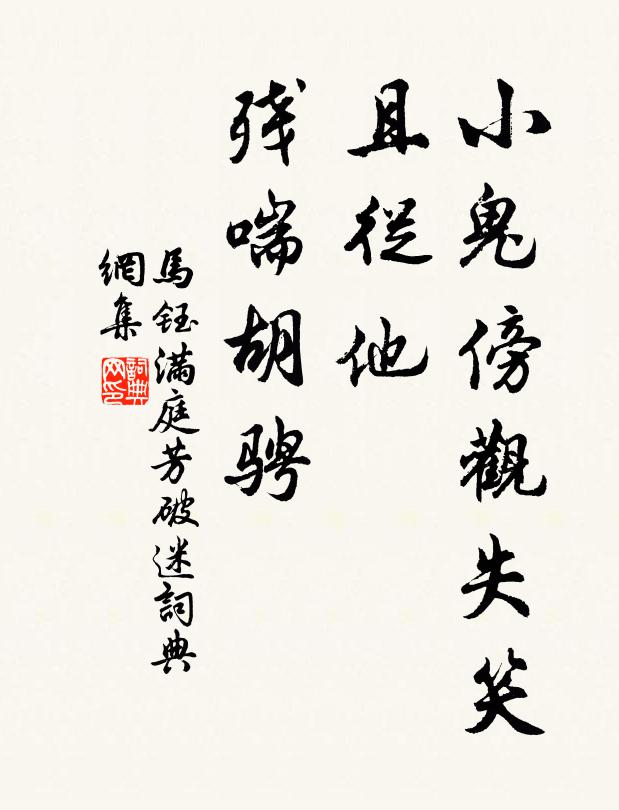 小鬼傍觀失笑
且從他
残喘胡騁
馬鈺满庭芳破迷詞典
網集
詞典网印